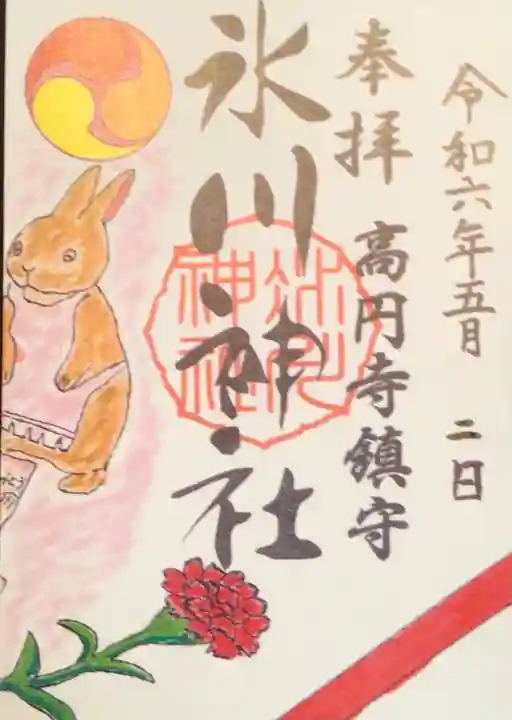 令和六年五月 二日
奉拝 高円寺鎮守
氷川神社
氷川
神社